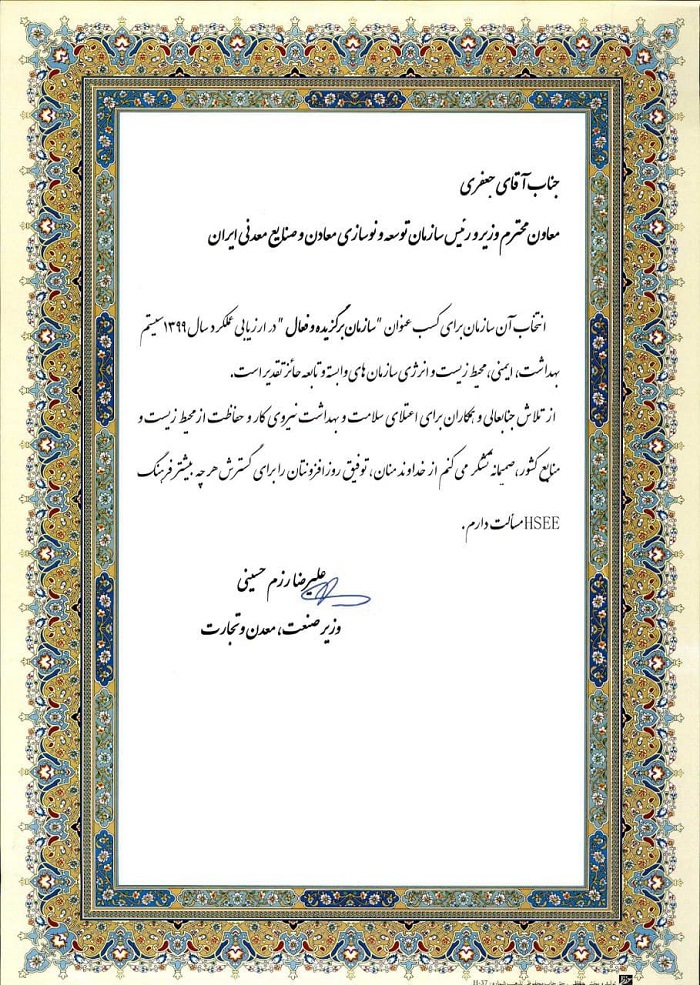 جناب آقای جعفری
معاون محترم وزیر و رئیس سازمان توسعه و نوسازی معادن و صنایع معدنی ایران
انتخاب آن سازمان برای کسب عنوان "سازمان برگزیده و فعال" در ارزیابی عملکرد سال ۱۳۹۹ سیستم
بهداشت، ایمنی، محیط زیست و انرژی سازمان های وابسته و تابعه حائز تقدیر است.
از تلاش جنابعالی و همکاران برای اعتلای سلامت و بهداشت نیروی کار و حفاظت از محیط زیست و
منابع کشور، صمیمانه تشکر می کنم از خداوند منان، توفیق روزافزونتان را برای گسترش هر چه بیشتر فرهنگ
HSEE مسألت دارم.
علیرضا رزم حسینی
وزیر صنعت، معدن و تجارت
H-37